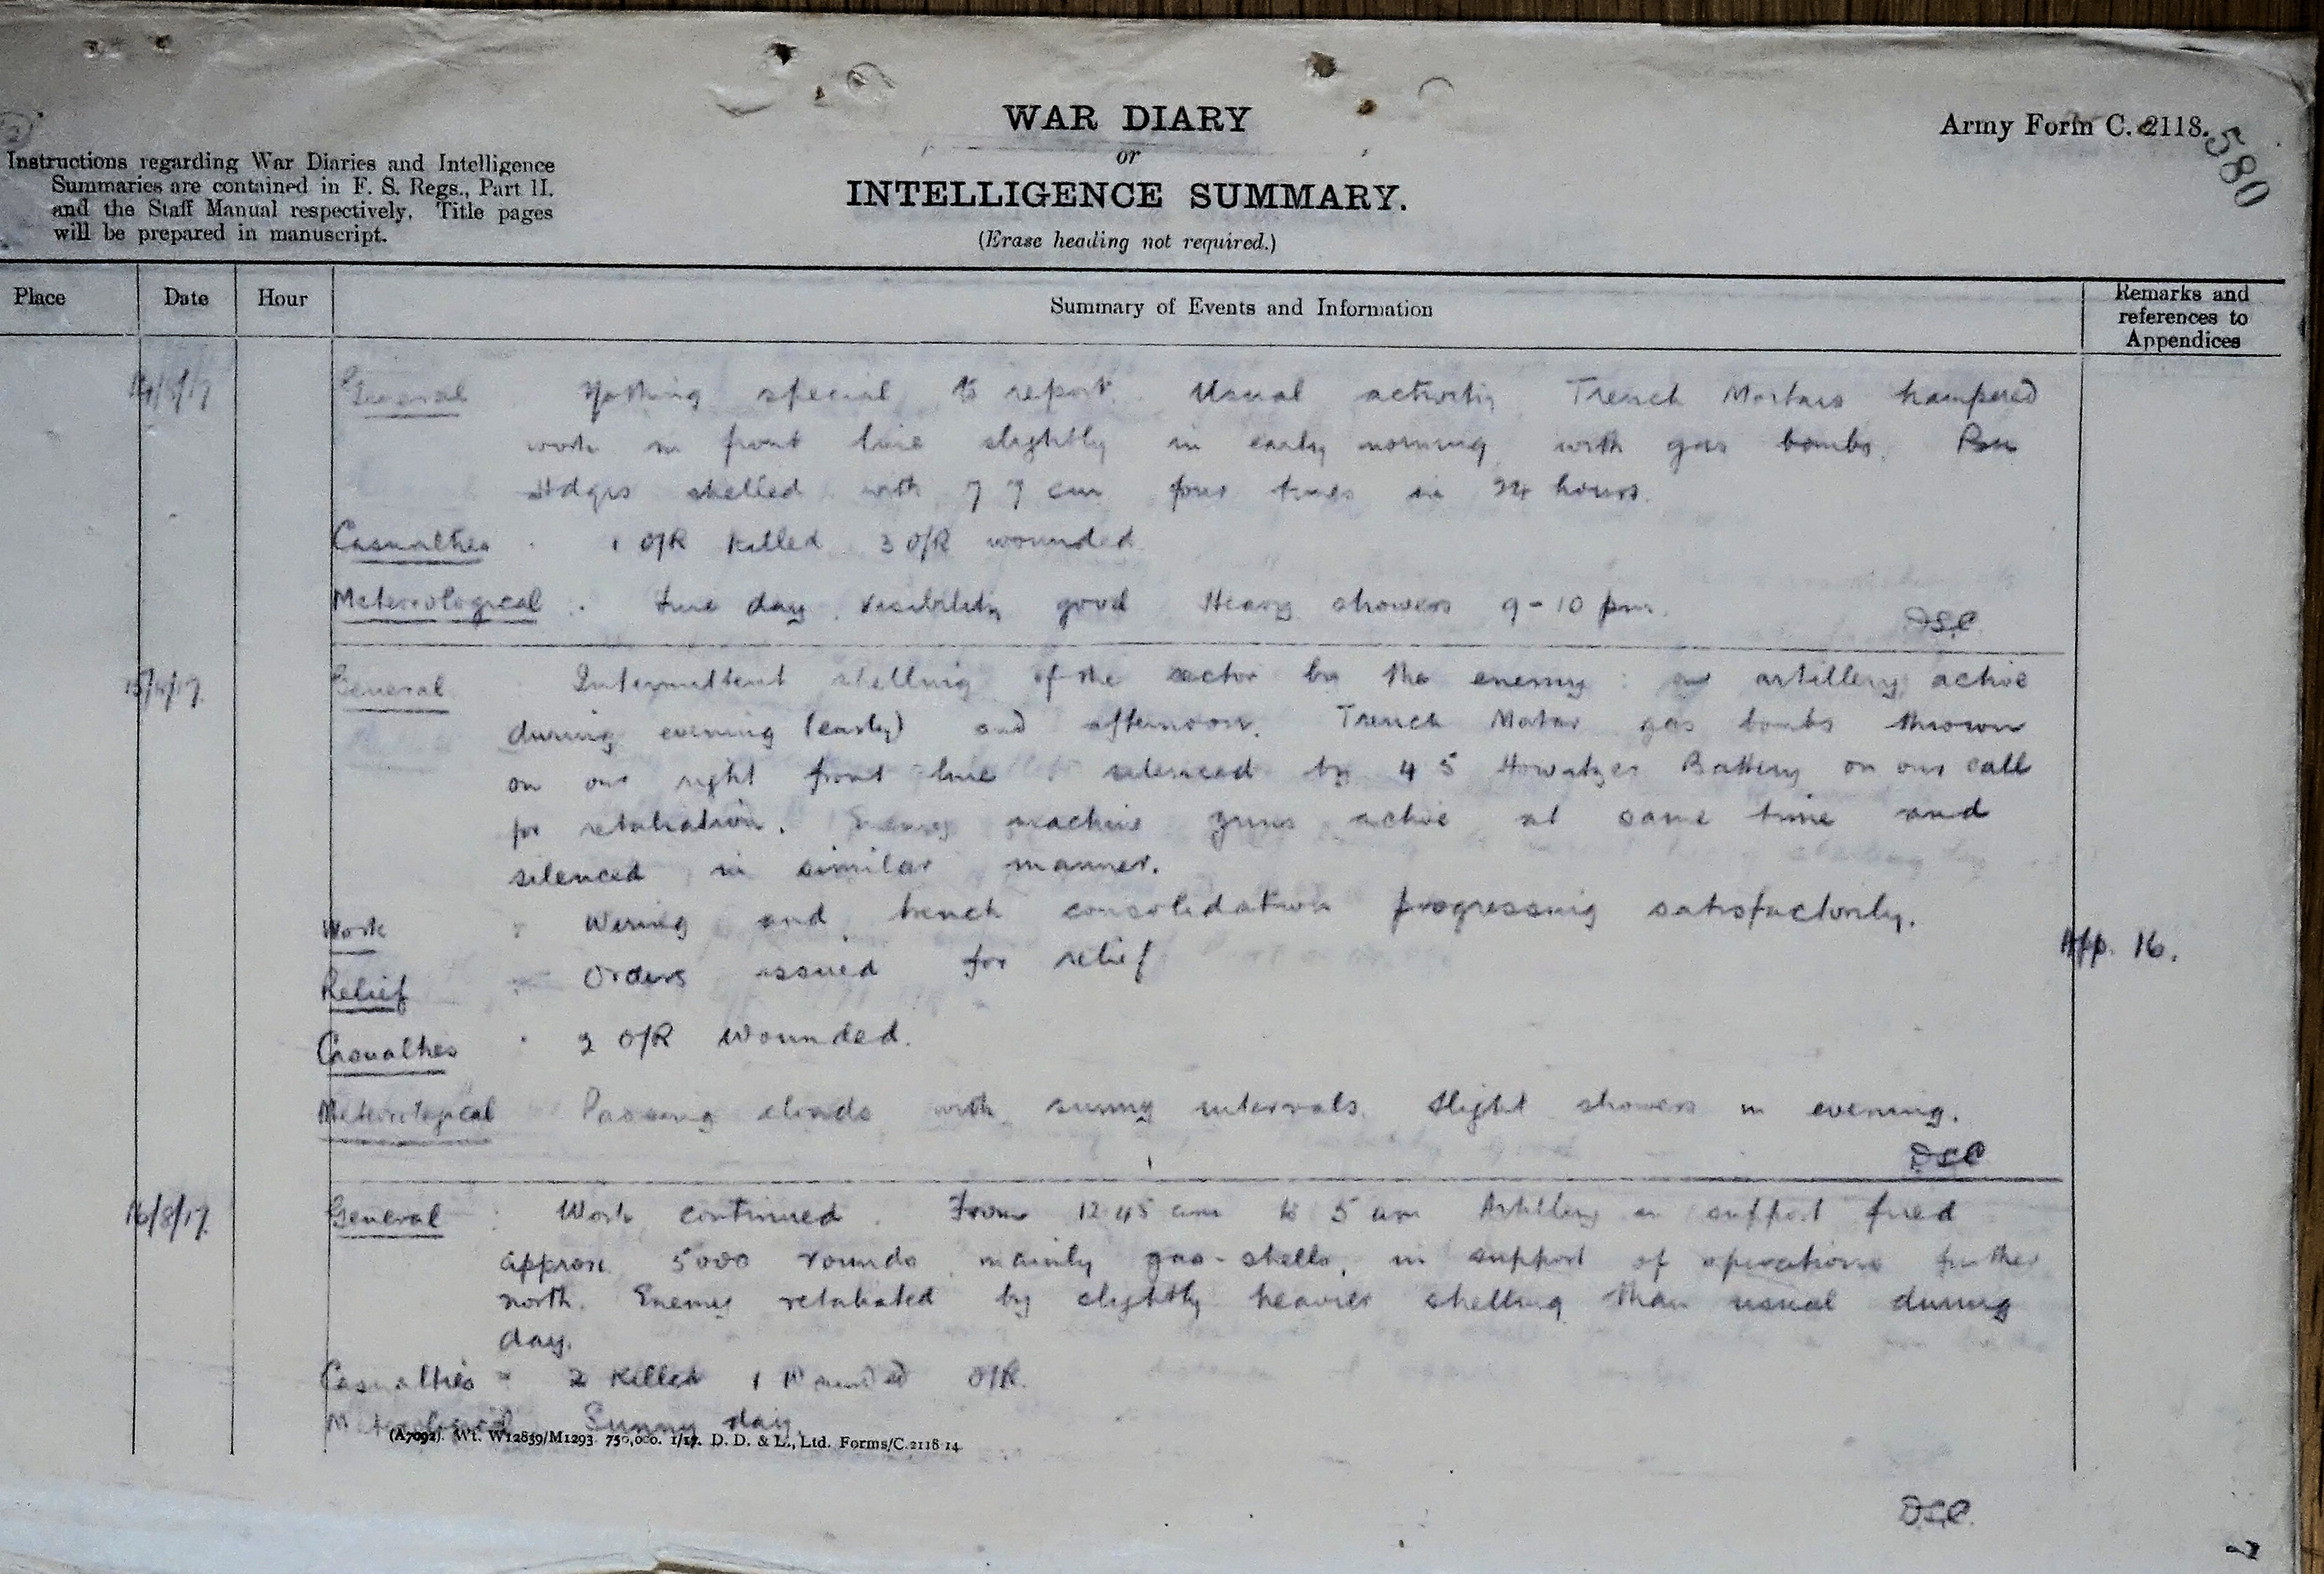 WAR DIARY
or
INTELLIGENCE SUMMARY.
(Erase heading not required.)
Army Form C. 2118.
580
Instructions regarding War Diaries and Intelligence
Summaries are contained in F. S. Regs., Part II.
and the Staff Manual respectively. Title pages
will be prepared in manuscript.
Place Date Hour Summary of Events and Information Remarks and
references to
Appendices
14/8/17 General Nothing special to report. Usual activity Trench Mortars hampered
work in front line slightly in early morning with gas bombs. Bn
Hdqrs shelled with 77 cm four times in 24 hours.
Casualties . 1 O/R killed 3 O/R wounded
Metereological . Fine day. Visibility good Heavy showers 9-10 pm.
DSC
15/8/17. General Intermittent shelling of the sector by the enemy : our artillery active
during evening (early) and afternoon. Trench Motar gas bombs thrown
on our right front line silenced by 4 5 Howitzer Battery on our call
for retaliation. Enemy machine guns active at same time and
silenced in similar manner.
Work : Wiring and trench consolidation progressing satisfactorily.
Relief : Orders issued for relief App. 16.
Casualties . 2 O/R Wounded.
Meteorological Passing clouds with sunny intervals. Slight showers in evening.
DSC
16/8/17. General : Work continued. From 12 45 am to 5 am Artillery in support fired
approx. 5000 rounds, mainly gas-shells, in support of operations further
north. Enemy retaliated by slightly heavier shelling than usual during
day.
Casualties 2 Killed 1 Wounded O/R.
Sunny day.
(A7092). Wt. W12839/M1293. 750,000. 1/17. D. D. & L., Ltd. Forms/C.2118 14
DSC.